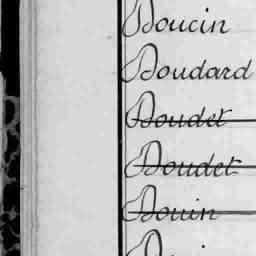 Doucin
Doudard
Doudet
Doudet
Douin